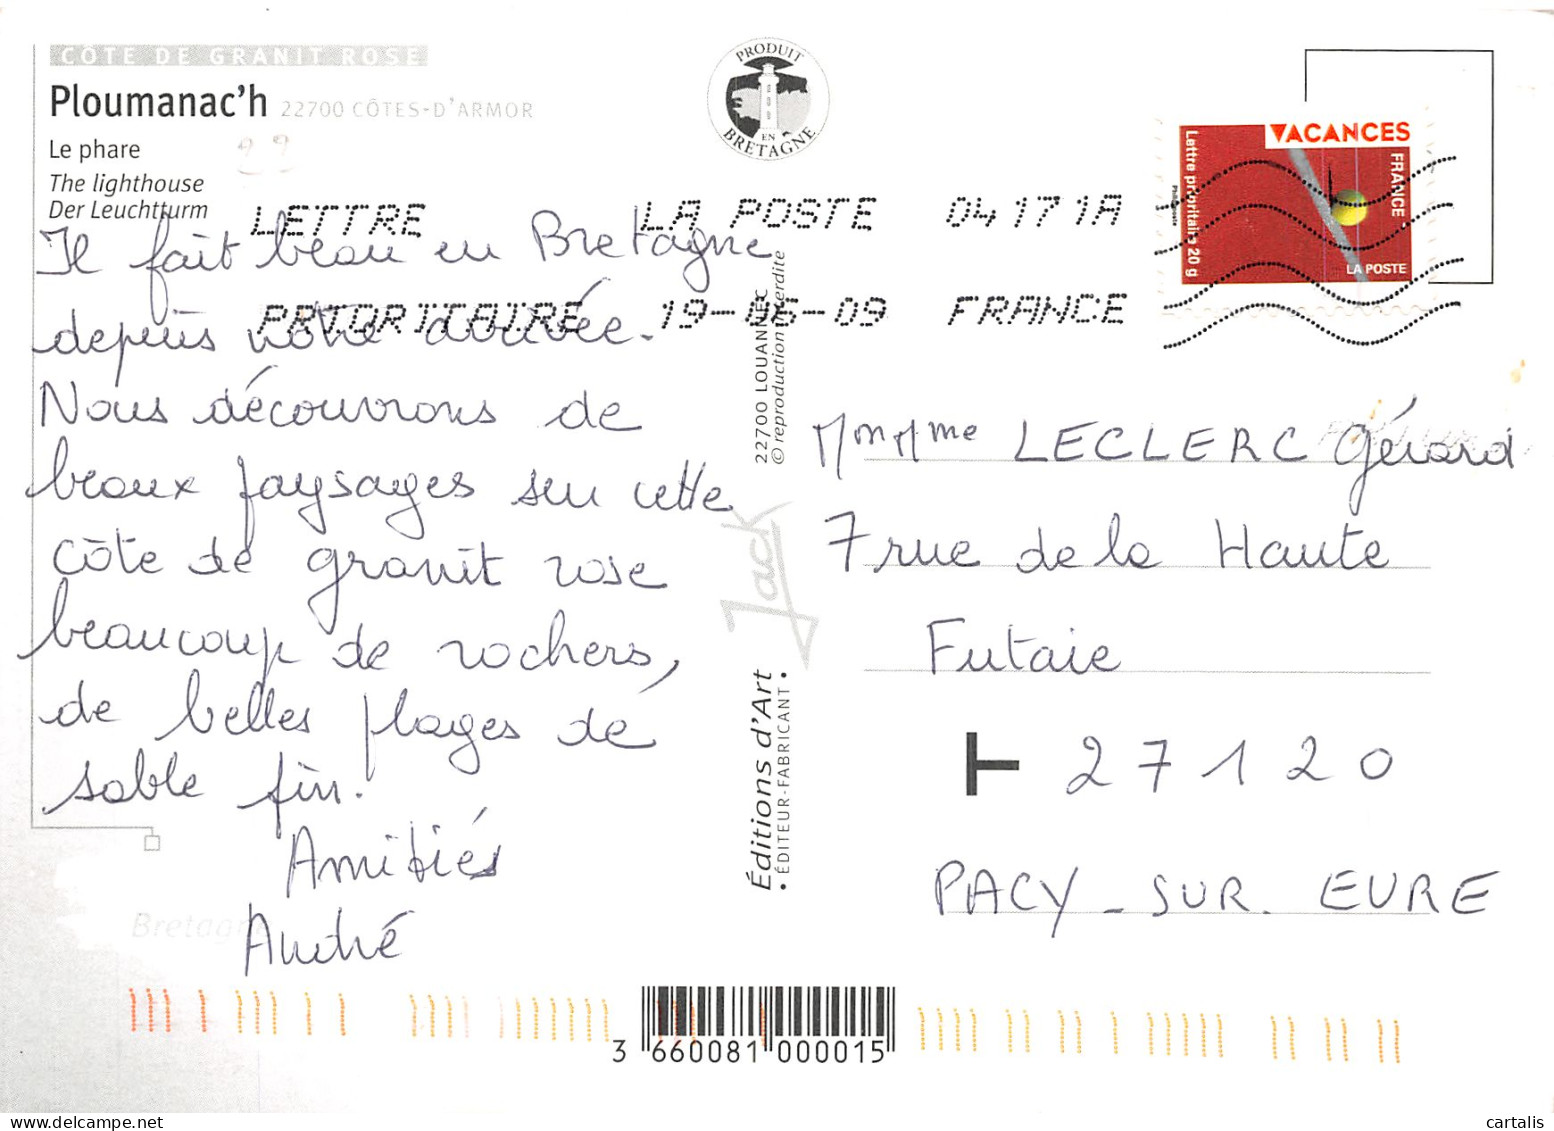 CÔTE DE GRANIT ROSE
Ploumanac'h 22700 CÔTES-D'ARMOR
Le phare
The lighthouse
Der Leuchtturm
PRODUIT
EN
BRETAGNE
VACANCES
Lettre prioritaire 20 g
Phil@poste
FRANCE
LA POSTE
LETTRE LA POSTE 04171A
PRIORITAIRE 19-06-09 FRANCE
Il fait beau en Bretagne
depuis notre arrivée.
Nous découvrons de
beaux paysages sur cette
côte de granit rose
beaucoup de rochers,
de belles plages de
sable fin.
Amitiés
André
Bretagne
22700 LOUANNEC
© reproduction interdite
Jack
Éditions d'Art
• ÉDITEUR-FABRICANT •
Mr Mme LECLERC Gérard
7 rue de la Haute
Futaie
T 27120
PACY-SUR-EURE
3 660081 000015
cartalis